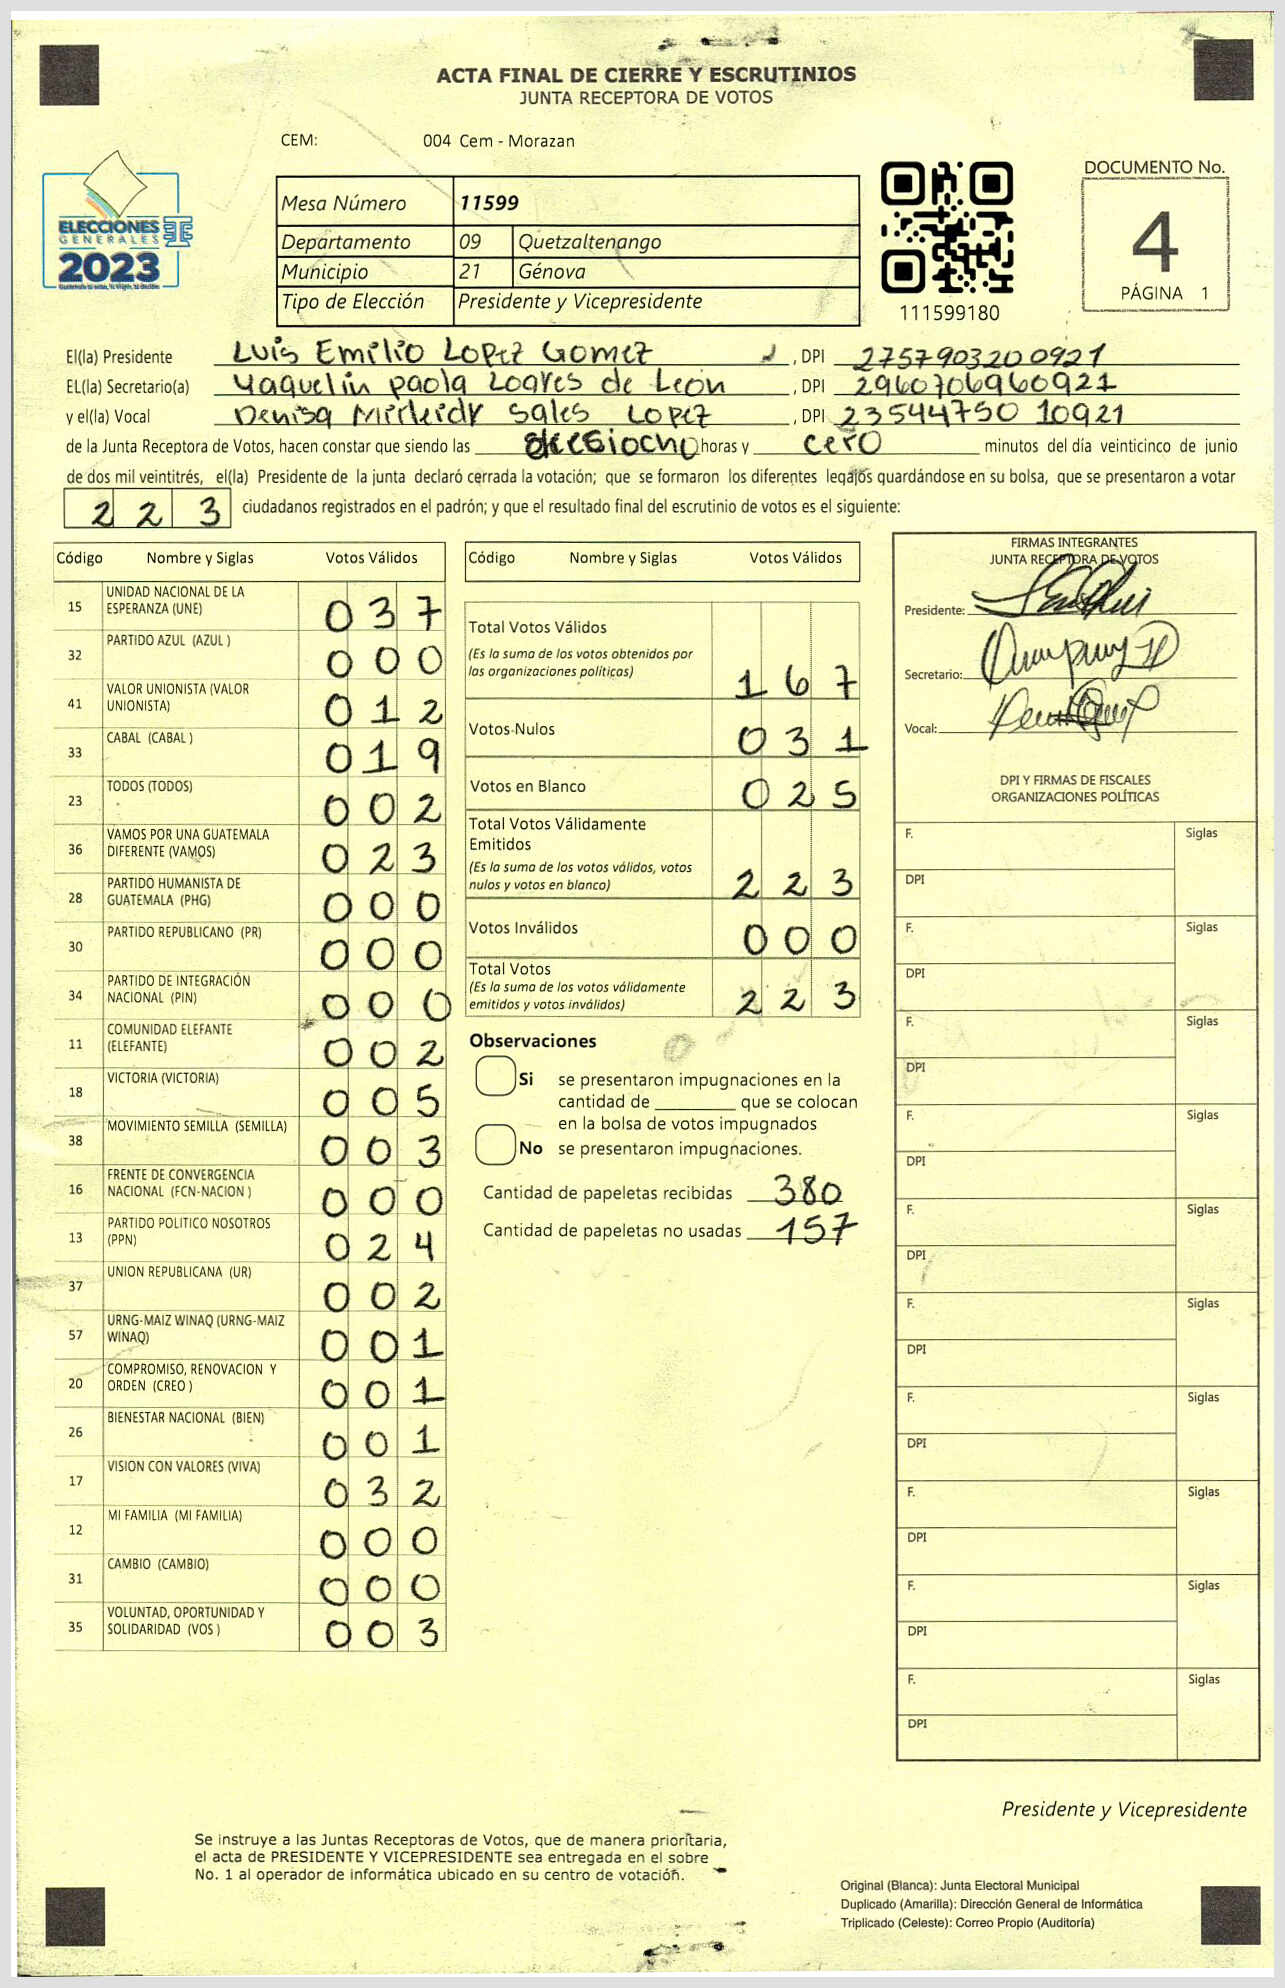 ACTA FINAL DE CIERRE Y ESCRUTINIOS
JUNTA RECEPTORA DE VOTOS
CEM: 004 Cem - Morazan
ELECCIONES
GENERALES
2023
Mesa Número 11599
Departamento 09 Quetzaltenango
Municipio 21 Génova
Tipo de Elección Presidente y Vicepresidente
111599180
DOCUMENTO No.
4
PÁGINA 1
El(la) Presidente Luis Emilio Lopez Gomez , DPI 2757903200921
EL(la) Secretario(a) Yaquelin paola Loares de Leon , DPI 2960706960921
y el(la) Vocal Denisa Mirleidy Sales Lopez , DPI 23544750 10921
de la Junta Receptora de Votos, hacen constar que siendo las diesiocho horas y cero minutos del día veinticinco de junio
de dos mil veintitrés, el(la) Presidente de la junta declaró cerrada la votación; que se formaron los diferentes legajos guardándose en su bolsa, que se presentaron a votar
223 ciudadanos registrados en el padrón; y que el resultado final del escrutinio de votos es el siguiente:
Código Nombre y Siglas Votos Válidos
15 UNIDAD NACIONAL DE LA
ESPERANZA (UNE) 037
32 PARTIDO AZUL (AZUL ) 000
41 VALOR UNIONISTA (VALOR
UNIONISTA) 012
33 CABAL (CABAL ) 019
23 TODOS (TODOS) 002
36 VAMOS POR UNA GUATEMALA
DIFERENTE (VAMOS) 023
28 PARTIDO HUMANISTA DE
GUATEMALA (PHG) 000
30 PARTIDO REPUBLICANO (PR) 000
34 PARTIDO DE INTEGRACIÓN
NACIONAL (PIN) 000
11 COMUNIDAD ELEFANTE
(ELEFANTE) 002
18 VICTORIA (VICTORIA) 005
38 MOVIMIENTO SEMILLA (SEMILLA) 003
16 FRENTE DE CONVERGENCIA
NACIONAL (FCN-NACION ) 000
13 PARTIDO POLITICO NOSOTROS
(PPN) 024
37 UNION REPUBLICANA (UR) 002
57 URNG-MAIZ WINAQ (URNG-MAIZ
WINAQ) 001
20 COMPROMISO, RENOVACION Y
ORDEN (CREO ) 001
26 BIENESTAR NACIONAL (BIEN) 001
17 VISION CON VALORES (VIVA) 032
12 MI FAMILIA (MI FAMILIA) 000
31 CAMBIO (CAMBIO) 000
35 VOLUNTAD, OPORTUNIDAD Y
SOLIDARIDAD (VOS ) 003
Código Nombre y Siglas Votos Válidos
Total Votos Válidos
(Es la suma de los votos obtenidos por
las organizaciones políticas) 167
Votos Nulos 031
Votos en Blanco 025
Total Votos Válidamente
Emitidos
(Es la suma de los votos válidos, votos
nulos y votos en blanco) 223
Votos Inválidos 000
Total Votos
(Es la suma de los votos válidamente
emitidos y votos inválidos) 223
Observaciones
Si se presentaron impugnaciones en la
cantidad de ________ que se colocan
en la bolsa de votos impugnados
No se presentaron impugnaciones.
Cantidad de papeletas recibidas 380
Cantidad de papeletas no usadas 157
FIRMAS INTEGRANTES
JUNTA RECEPTORA DE VOTOS
Presidente:
Secretario:
Vocal:
DPI Y FIRMAS DE FISCALES
ORGANIZACIONES POLÍTICAS
F. Siglas
DPI
F. Siglas
DPI
F. Siglas
DPI
F. Siglas
DPI
F. Siglas
DPI
F. Siglas
DPI
F. Siglas
DPI
F. Siglas
DPI
F. Siglas
DPI
F. Siglas
DPI
Presidente y Vicepresidente
Se instruye a las Juntas Receptoras de Votos, que de manera prioritaria,
el acta de PRESIDENTE Y VICEPRESIDENTE sea entregada en el sobre
No. 1 al operador de informática ubicado en su centro de votación.
Original (Blanca): Junta Electoral Municipal
Duplicado (Amarilla): Dirección General de Informática
Triplicado (Celeste): Correo Propio (Auditoría)